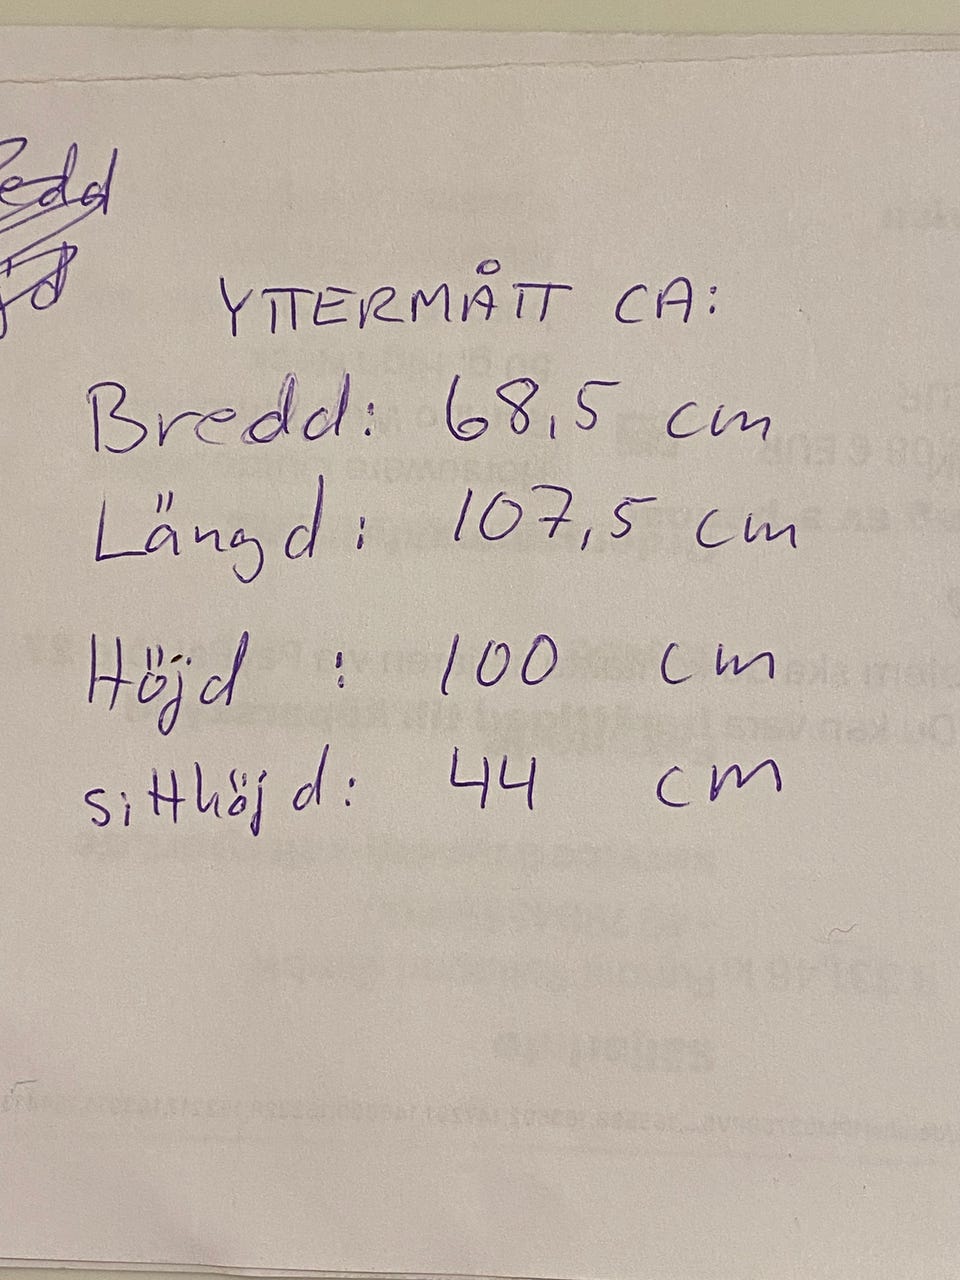 YTTERMÅTT CA:
Bredd: 68,5 cm
Längd: 107,5 cm
Höjd : 100 cm
sitthöjd: 44 cm